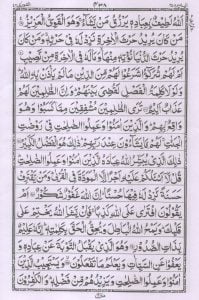 ٤٣٨
اَللّٰهُ لَطِيْفٌۢ بِعِبَادِهٖ يَرْزُقُ مَنْ يَّشَآءُ ۚ وَهُوَ الْقَوِيُّ الْعَزِيْزُ
مَنْ كَانَ يُرِيْدُ حَرْثَ الْاٰخِرَةِ نَزِدْ لَهٗ فِيْ حَرْثِهٖ ۚ وَمَنْ كَانَ يُرِيْدُ
حَرْثَ الدُّنْيَا نُؤْتِهٖ مِنْهَا وَمَا لَهٗ فِي الْاٰخِرَةِ مِنْ نَّصِيْبٍ
اَمْ لَهُمْ شُرَكٰٓؤُا شَرَعُوْا لَهُمْ مِّنَ الدِّيْنِ مَا لَمْ يَاْذَنْۢ بِهِ اللّٰهُ
وَلَوْلَا كَلِمَةُ الْفَصْلِ لَقُضِيَ بَيْنَهُمْ ۗ وَاِنَّ الظّٰلِمِيْنَ لَهُمْ
عَذَابٌ اَلِيْمٌ تَرَى الظّٰلِمِيْنَ مُشْفِقِيْنَ مِمَّا كَسَبُوْا وَهُوَ
وَاقِعٌۢ بِهِمْ ۗ وَالَّذِيْنَ اٰمَنُوْا وَعَمِلُوا الصّٰلِحٰتِ فِيْ رَوْضٰتِ
الْجَنّٰتِ ۚ لَهُمْ مَّا يَشَآءُوْنَ عِنْدَ رَبِّهِمْ ۗ ذٰلِكَ هُوَ الْفَضْلُ الْكَبِيْرُ
ذٰلِكَ الَّذِيْ يُبَشِّرُ اللّٰهُ عِبَادَهُ الَّذِيْنَ اٰمَنُوْا وَعَمِلُوا الصّٰلِحٰتِ
قُلْ لَّآ اَسْـَٔلُكُمْ عَلَيْهِ اَجْرًا اِلَّا الْمَوَدَّةَ فِي الْقُرْبٰى ۗ وَمَنْ يَّقْتَرِفْ
حَسَنَةً نَّزِدْ لَهٗ فِيْهَا حُسْنًا ۗ اِنَّ اللّٰهَ غَفُوْرٌ شَكُوْرٌ اَمْ
يَقُوْلُوْنَ افْتَرٰى عَلَى اللّٰهِ كَذِبًا ۚ فَاِنْ يَّشَاِ اللّٰهُ يَخْتِمْ عَلٰى
قَلْبِكَ ۗ وَيَمْحُ اللّٰهُ الْبَاطِلَ وَيُحِقُّ الْحَقَّ بِكَلِمٰتِهٖ ۗ اِنَّهٗ عَلِيْمٌۢ
بِذَاتِ الصُّدُوْرِ وَهُوَ الَّذِيْ يَقْبَلُ التَّوْبَةَ عَنْ عِبَادِهٖ وَ
يَعْفُوْا عَنِ السَّيِّاٰتِ وَيَعْلَمُ مَا تَفْعَلُوْنَ وَيَسْتَجِيْبُ الَّذِيْنَ
اٰمَنُوْا وَعَمِلُوا الصّٰلِحٰتِ وَيَزِيْدُهُمْ مِّنْ فَضْلِهٖ ۗ وَالْكٰفِرُوْنَ